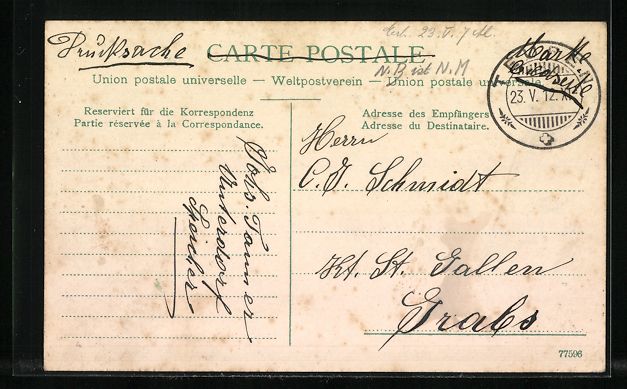 Drucksache
CARTE POSTALE
Marke
Union postale universelle – Weltpostverein – Union postale
23. V. 12.
Reserviert für die Korrespondenz
Partie réservée à la Correspondance.
Adresse des Empfängers
Adresse du Destinataire.
Herrn
C. J. Schmidt
Kt. St. Gallen
Grabs
Johs. Tanner
Unterdorf
Speicher
77596